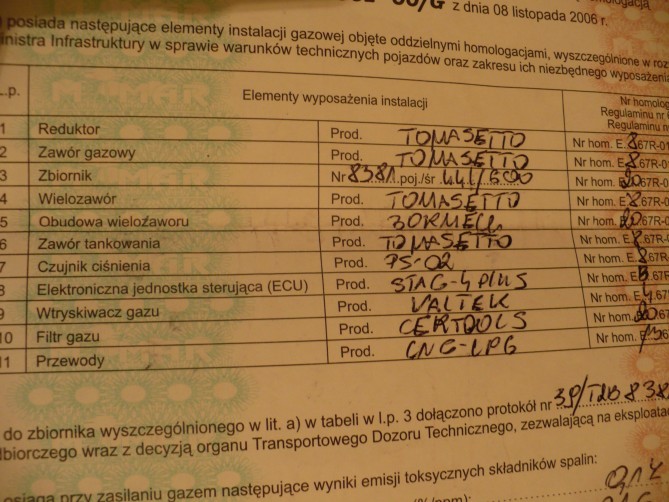 z dnia 08 listopada 2006 r.
posiada następujące elementy instalacji gazowej objęte oddzielnymi homologacjami, wyszczególnione w roz
inistra Infrastruktury w sprawie warunków technicznych pojazdów oraz zakresu ich niezbędnego wyposażenia
L.p. Elementy wyposażenia instalacji Nr homolog
Regulaminu nr 6
Regulaminu n
1 Reduktor Prod. TOMASETTO Nr hom. E.8 67R-01
2 Zawór gazowy Prod. TOMASETTO Nr hom. E.8 67R-01
3 Zbiornik Nr 8381 poj./śr 44l/600 Nr hom. 20 67R-0
4 Wielozawór Prod. TOMASETTO Nr hom. E.8 67R-0
5 Obudowa wielozaworu Prod. BORMECH Nr hom. 20 67R-0
6 Zawór tankowania Prod. TOMASETTO Nr hom. E.8 67R-
7 Czujnik ciśnienia Prod. PS-02 Nr hom. E. 67R-
8 Elektroniczna jednostka sterująca (ECU) Prod. STAG-4 PLUS Nr hom. E. 67R
9 Wtryskiwacz gazu Prod. VALTEK Nr hom. E.4 67
10 Filtr gazu Prod. CERTOOLS Nr hom. 20 67
11 Przewody Prod. CNG-LPG Nr hom. E.
do zbiornika wyszczególnionego w lit. a) w tabeli w l.p. 3 dołączono protokół nr
dbiorczego wraz z decyzją organu Transportowego Dozoru Technicznego, zezwalającą na eksploatac
osiąga przy zasilaniu gazem następujące wyniki emisji toksycznych składników spalin: